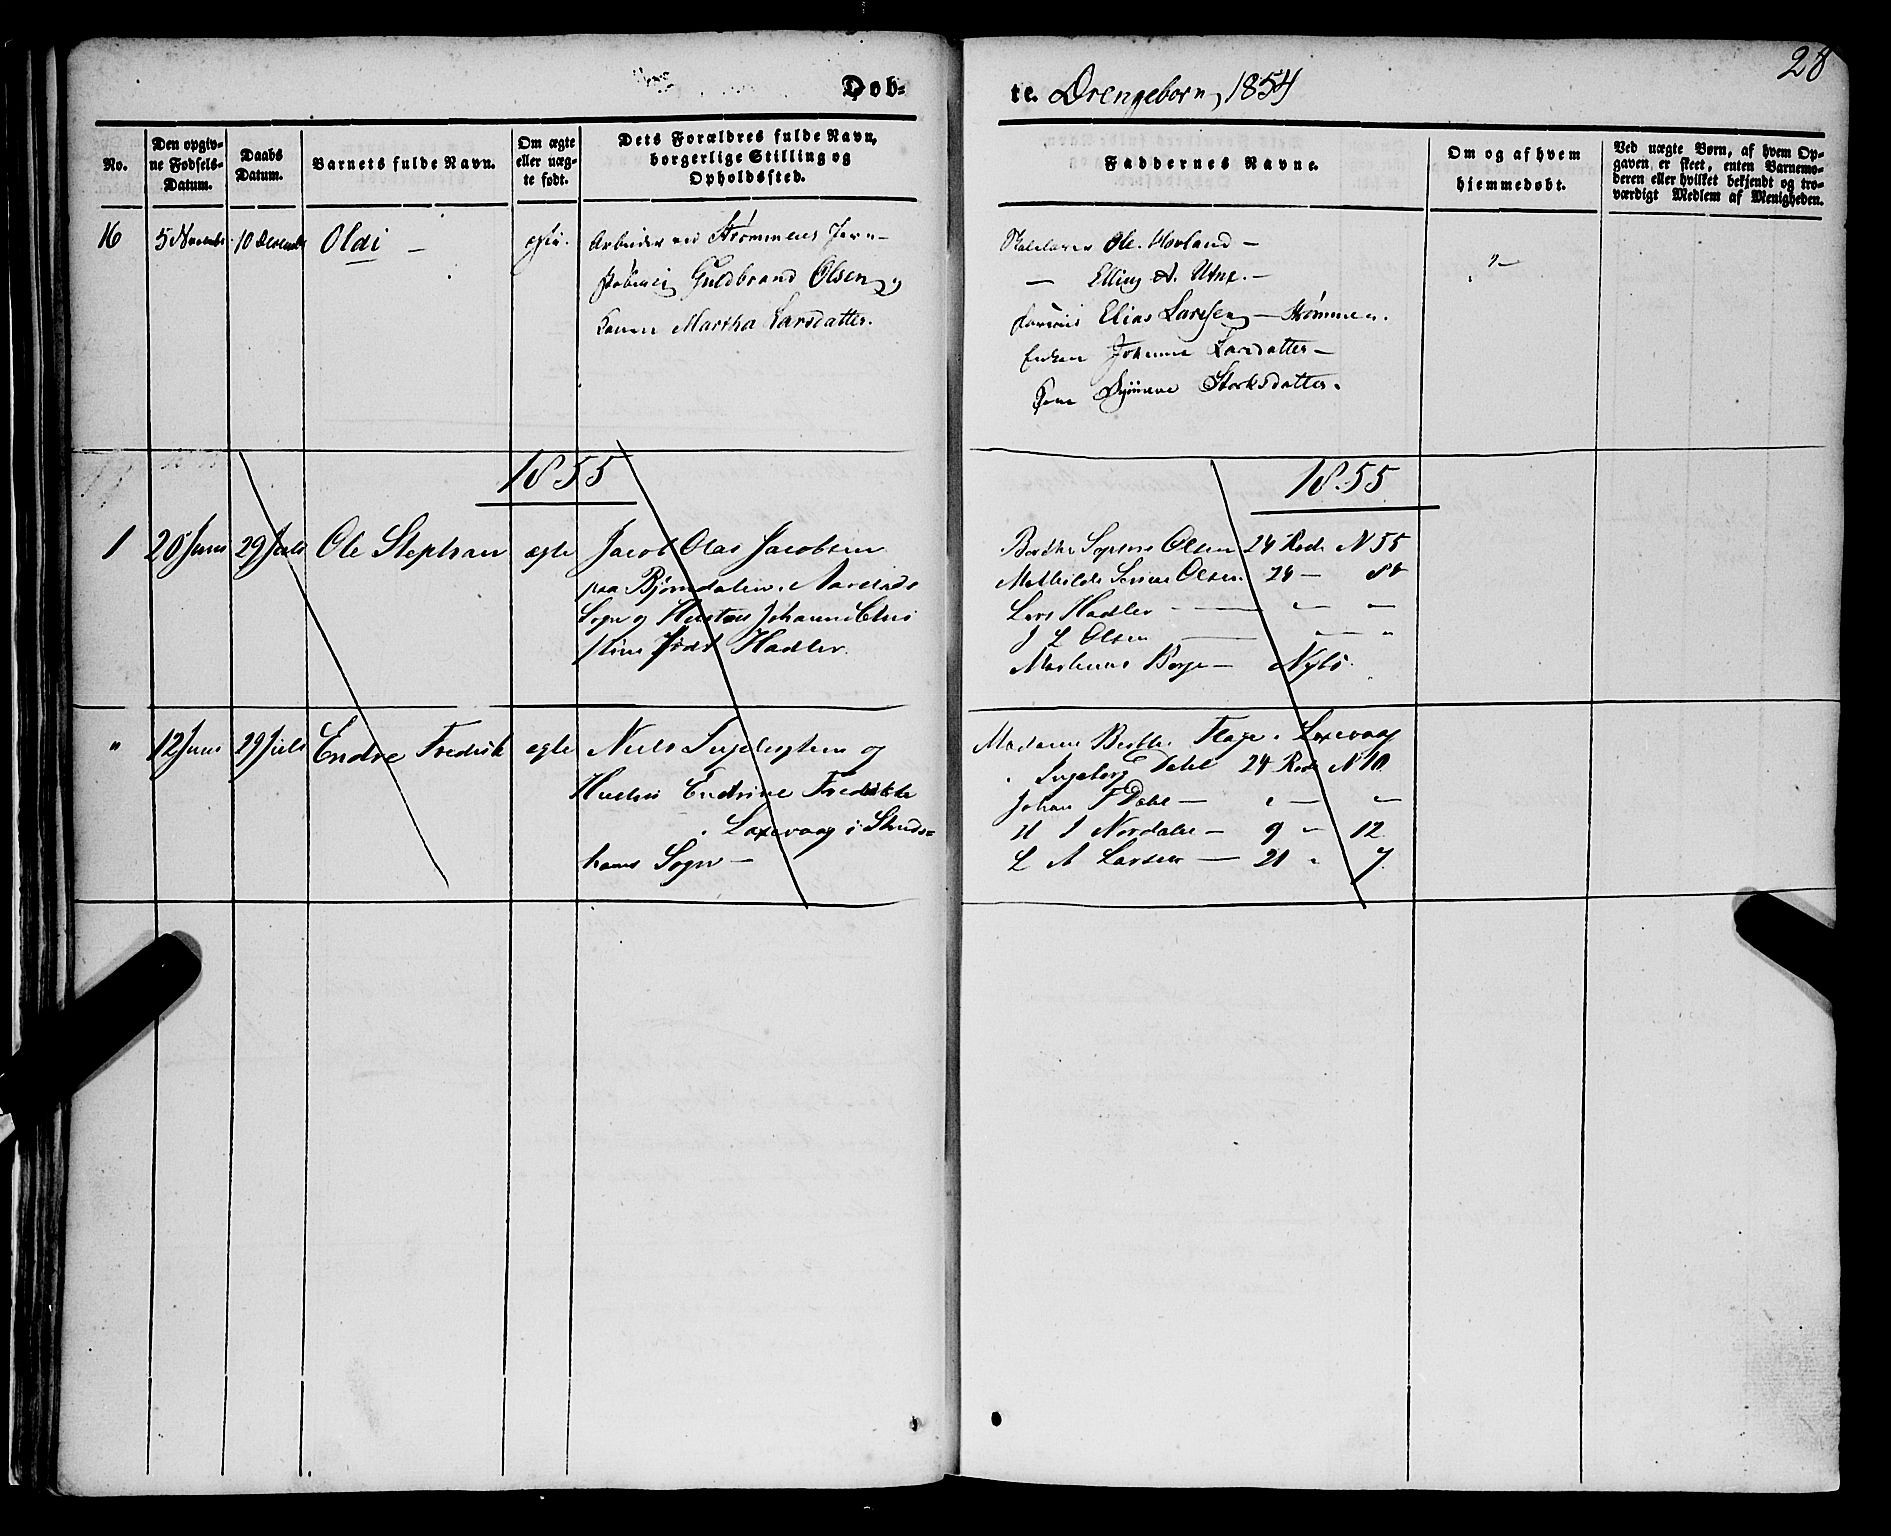 28
Døb-
te. Drengebørn, 1854
No.
Den opgiv-
ne Fødsels-
Datum.
Daabs
Datum.
Barnets fulde Navn.
Om ægte
eller uæg-
te født.
Dets Forældres fulde Navn,
borgerlige Stilling og
Opholdssted.
Faddernes Navne.
Om og af hvem
hjemmedøbt.
Ved uægte Børn, af hvem Op-
gaven er skeet, enten Barnemo-
deren eller hvilket bekjendt og tro-
værdigt Medlem af Menigheden.
16
5 November
10 December
Oldi —
Arbeider ved Strømmens Jern-
Guldbrand Olsen og
Konen Martha Larsdatter.
Ole Hovland —
— Elling A. Utne. —
Elias Larssen — Strømmen.
Enken Johanne Larsdatter —
Storksdatter.
1855
1855
1
20 Juni
29 Juli
Ole Stephan
ægte
Jacob Olai Jacobsen
paa Bjørndalen i
Sogn og Hustru Johanne Chri
stine født Hadler.
Berthe Olsen 24 Rode N 55
Mathilde Olsen 24 —
Lars Hadler — " —
J L Olsen — " — "
Børge — Nybö.
"
12 Juni
29 Juli
Endre Fredrik
ægte
Niels og
Hustru Endrine Fredrikke
i Laxevaag i Struds-
havns Sogn —
Madame Berthe Flage i Laxevaag
" Ingeborg Dahl 24 Rode N 10
Johan F Dahl — " — " —
H J Nordahl — 9 " 12
L A Larsen — 21 " 7.